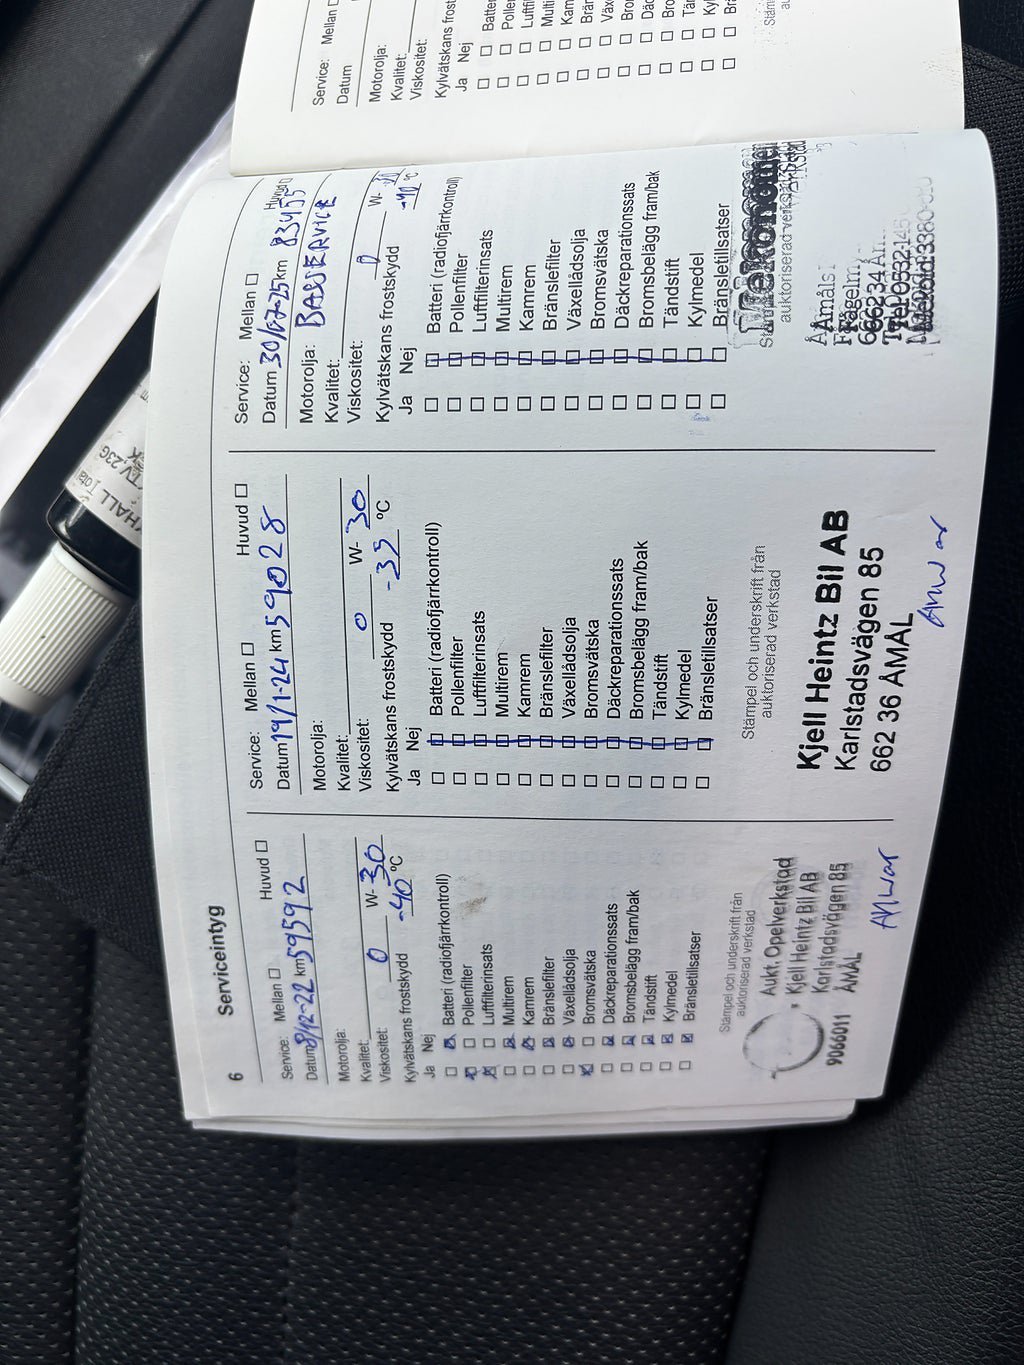 6 Serviceintyg
Service: Mellan ☐ Huvud ☐
Datum 8/12-22 km 59592
Motorolja:
Kvalitet:
Viskositet: 0 W- 30
Kylvätskans frostskydd -40 °C
Ja Nej
Batteri (radiofjärrkontroll)
Pollenfilter
Luftfilterinsats
Multirem
Kamrem
Bränslefilter
Växellådsolja
Bromsvätska
Däckreparationssats
Bromsbelägg fram/bak
Tändstift
Kylmedel
Bränsletillsatser
Stämpel och underskrift från
auktoriserad verkstad
Aukt. Opelverkstad
Kjell Heintz Bil AB
Karlstadsvägen 85
9066011 ÅMÅL
Anwar
Service: Mellan ☐ Huvud ☐
Datum 19/1-24 km 59028
Motorolja:
Kvalitet:
Viskositet: 0 W- 30
Kylvätskans frostskydd -35 °C
Ja Nej
Batteri (radiofjärrkontroll)
Pollenfilter
Luftfilterinsats
Multirem
Kamrem
Bränslefilter
Växellådsolja
Bromsvätska
Däckreparationssats
Bromsbelägg fram/bak
Tändstift
Kylmedel
Bränsletillsatser
Stämpel och underskrift från
auktoriserad verkstad
Kjell Heintz Bil AB
Karlstadsvägen 85
662 36 ÅMÅL
Anwar
Service: Mellan ☐ Huvud ☐
Datum 30/07-25 km 83455
Motorolja: BASSERVICE
Kvalitet:
Viskositet: 0 W-
Kylvätskans frostskydd -40 °C
Ja Nej
Batteri (radiofjärrkontroll)
Pollenfilter
Luftfilterinsats
Multirem
Kamrem
Bränslefilter
Växellådsolja
Bromsvätska
Däckreparationssats
Bromsbelägg fram/bak
Tändstift
Kylmedel
Bränsletillsatser
auktoriserad verkstad
662 34
Service: Mellan ☐
Datum
Motorolja:
Kvalitet:
Viskositet:
Kylvätskans frost
Ja Nej
Batter
Pollen